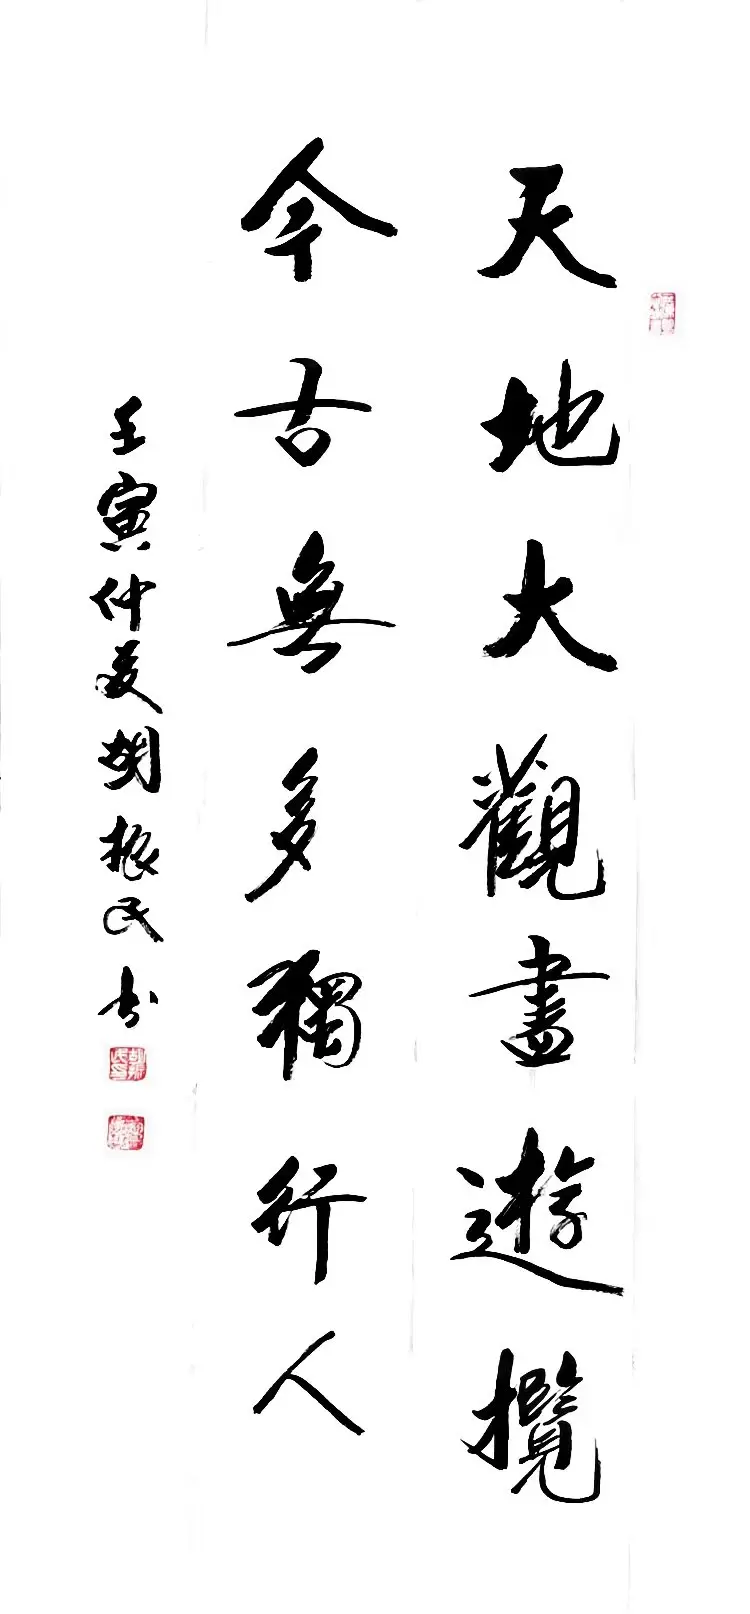 天地大觀盡遊攬
今古無多獨行人
壬寅仲夏胡振民书